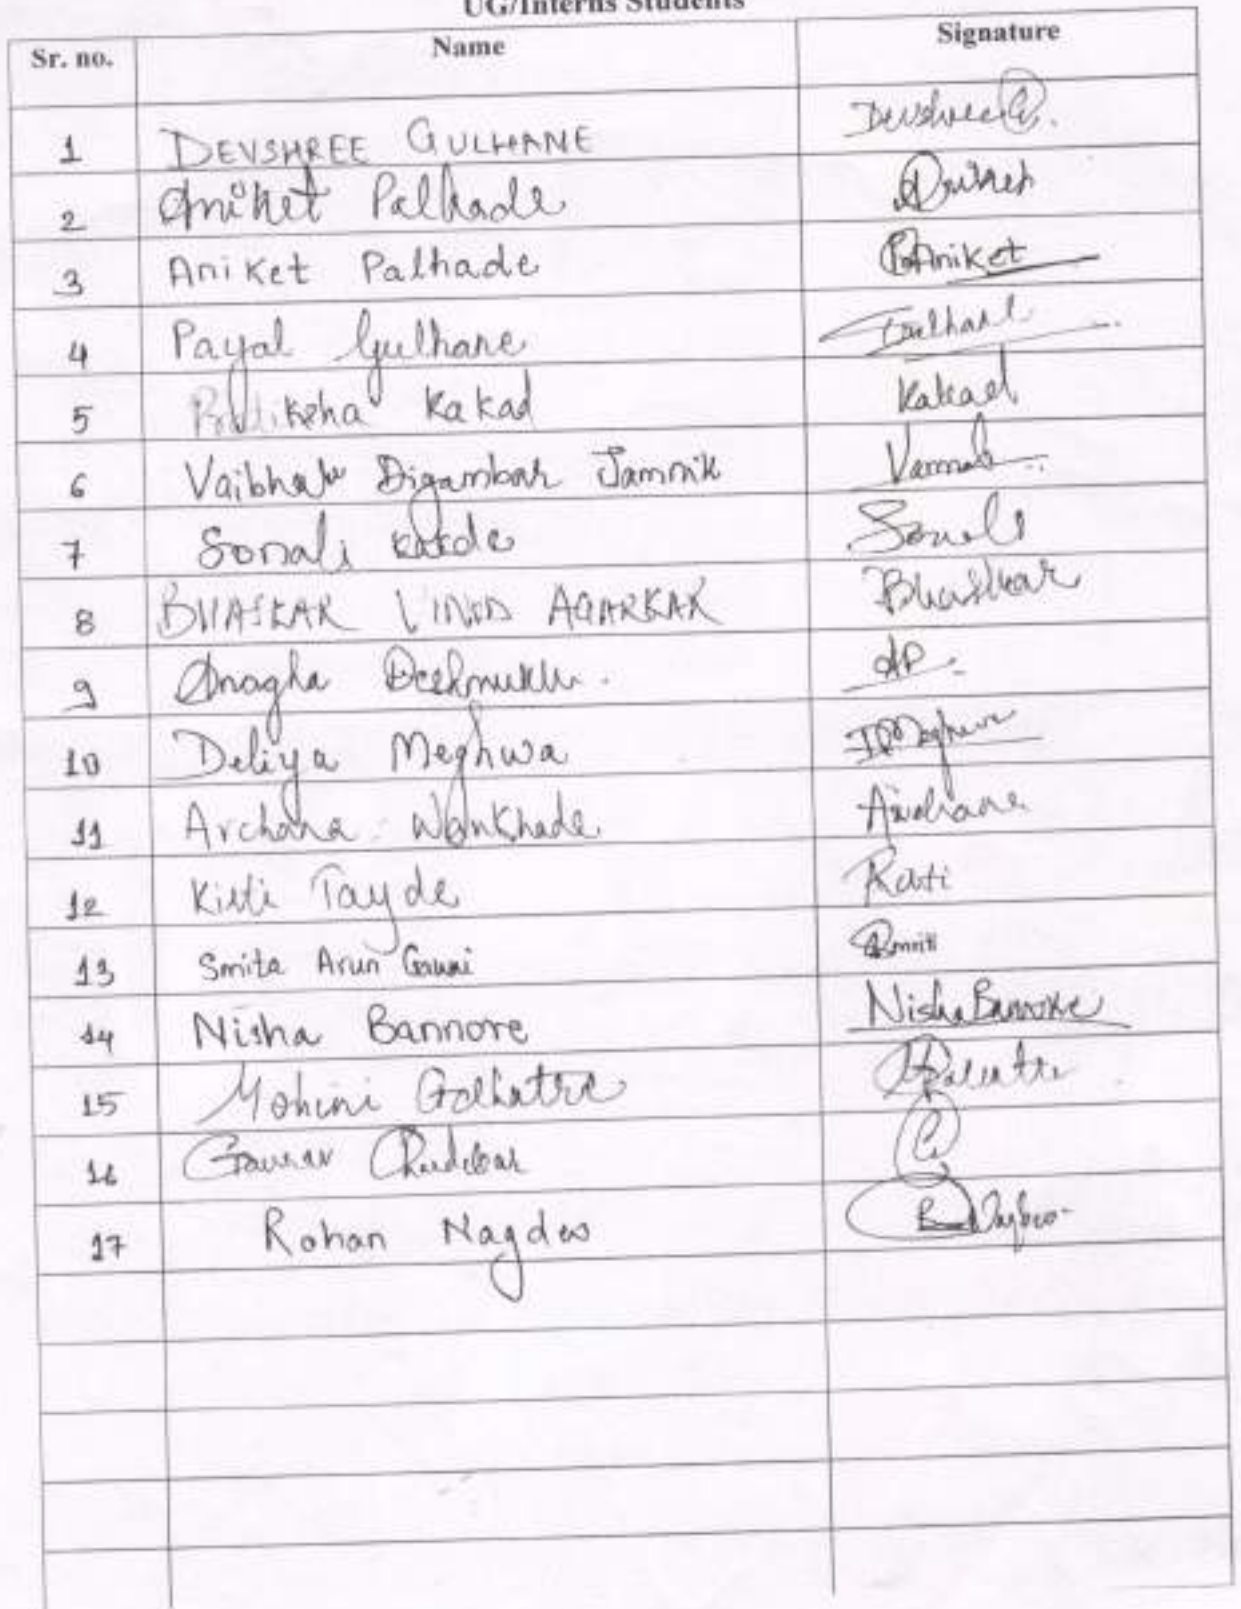 UG/Interns Students
Sr. no. Name Signature
1 DEVSHREE GULHANE Devshree G.
2 Aniket Palhade Aniket
3 Aniket Palhade P.Aniket
4 Payal Gulhane Gulhane
5 Pratiksha Kakad Kakad
6 Vaibhav Digambar Jamnik
7 Sonali Kakde Sonali
8 BHASKAR VINOD AGARKAR Bhaskar
9 Anagha Deshmukh. AD.
10 Deliya Meghwa
11 Archana Wankhade. Archana
12 Kirti Tayde Kirti
13 Smita Arun Gawai
14 Nisha Bannore Nisha Bannore
15 Mohini Golhatre
16 Gaurav
17 Rohan Nagdev